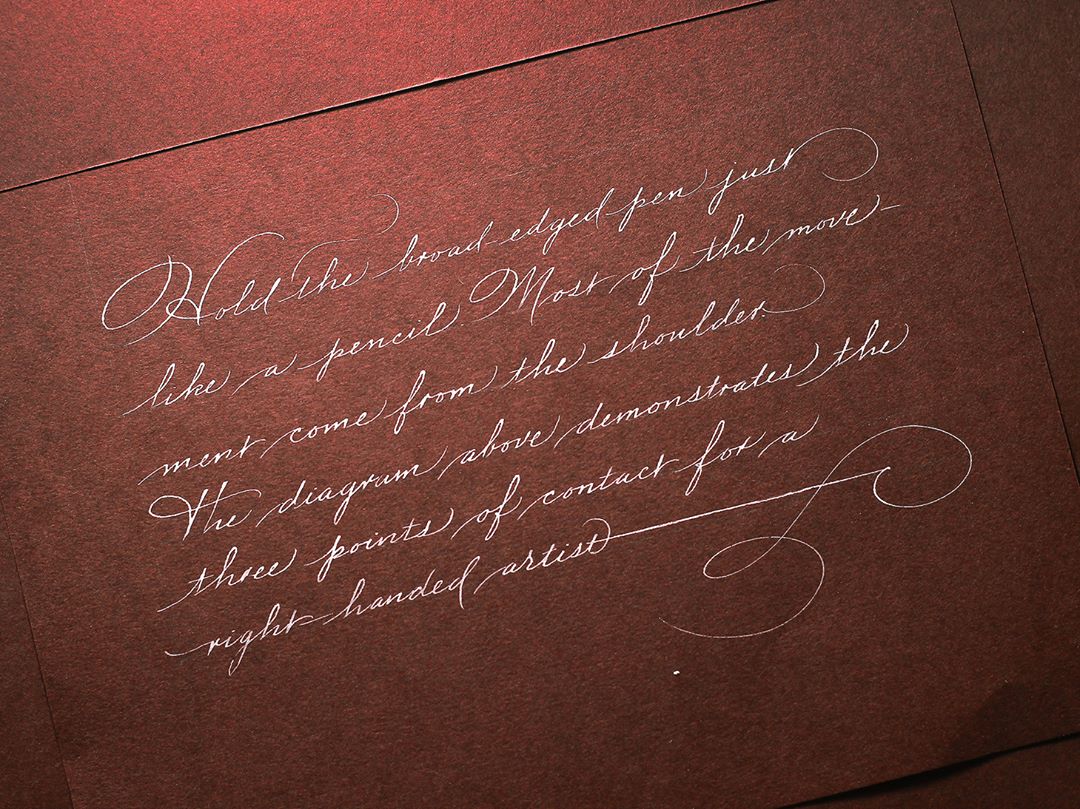 Hold the broad-edged pen just
like a pencil. Most of the move-
ment come from the shoulder.
The diagram above demonstrates the
three points of contact for a
right handed artist